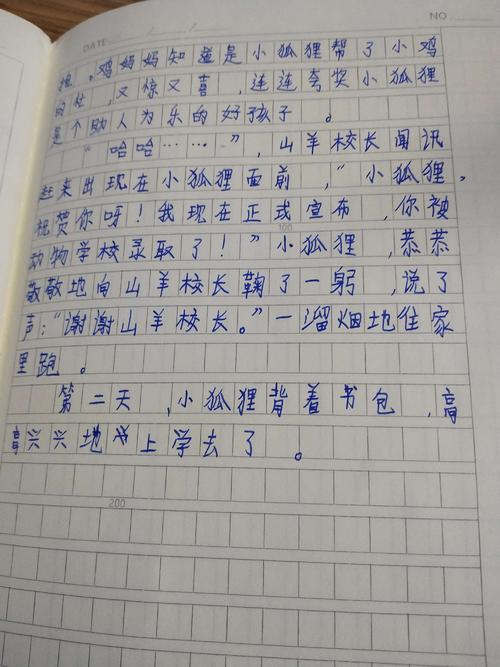 NO
DATE
抱。鸡妈妈知道是小狐狸帮了小鸡
的忙，又惊又喜，连连夸奖小狐狸
是个助人为乐的好孩子。
“哈哈……”，山羊校长闻讯
赶来出现在小狐狸面前，“小狐狸，
祝贺你呀！我现在正式宣布，你被
100
动物学校录取了！”小狐狸，恭恭
敬敬地向山羊校长鞠了一躬，说了
声：“谢谢山羊校长。”一溜烟地往家
里跑。
第二天，小狐狸背着书包，高
高兴兴地上学去了。
200